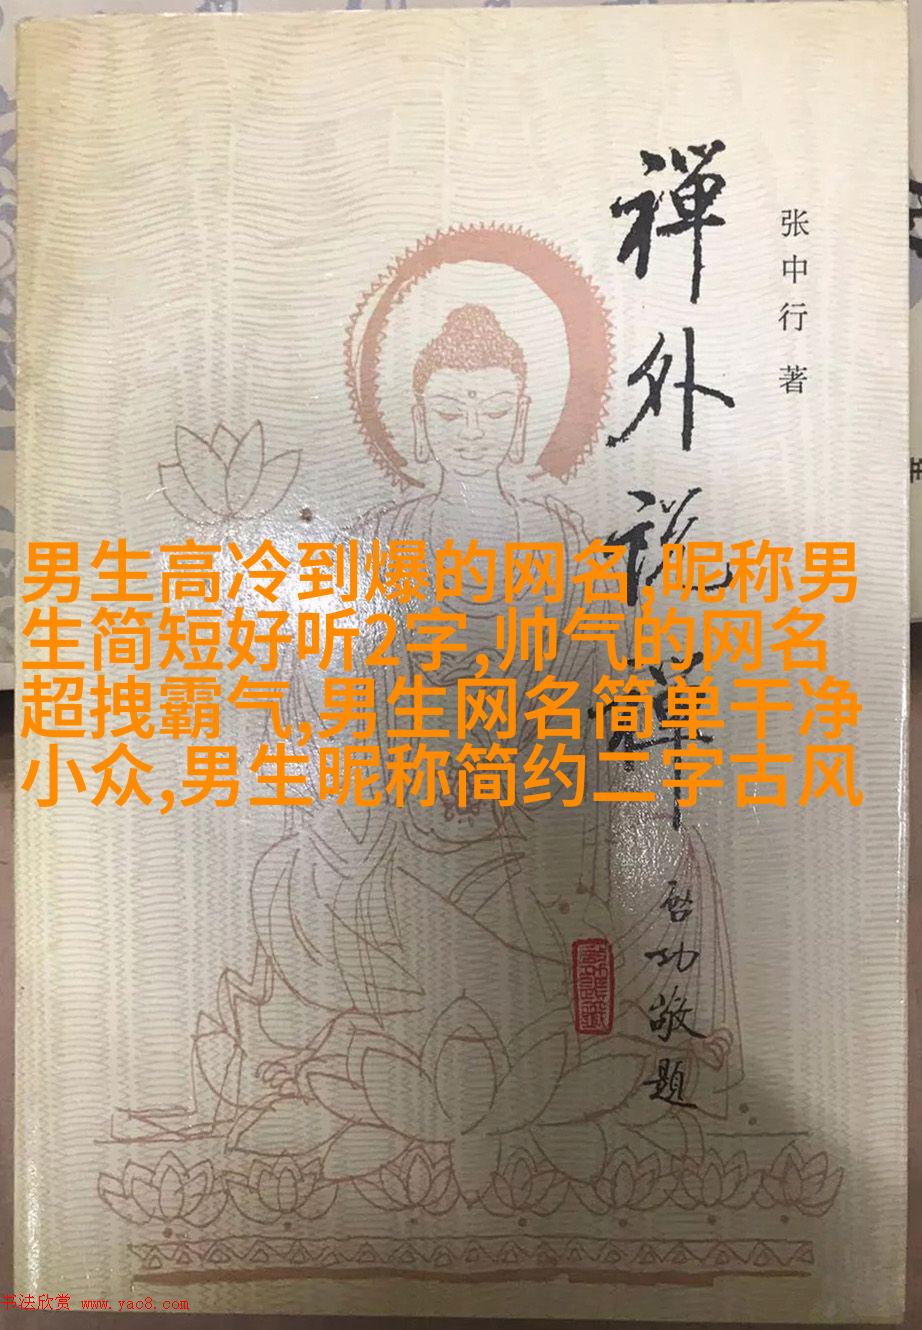 禅外说禅
张中行 著
男生高冷到爆的网名,昵称男
生简短好听2字,帅气的网名
超拽霸气,男生网名简单干净
小众,男生昵称简约二字古风
启功敬题
书法欣赏 www.yac8.com